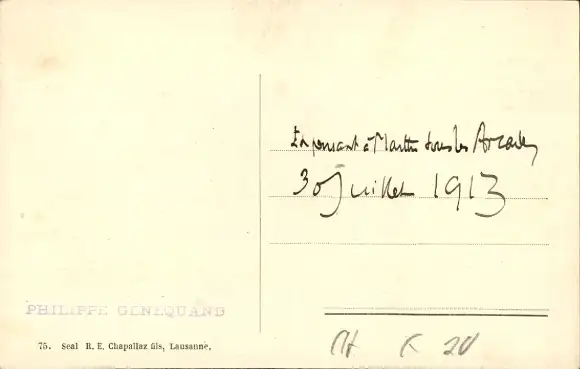 En pensant à Marthe sous les Arcades
30 Juillet 1913
PHILIPPE GENEQUAND
75. Seal R. E. Chapallaz fils, Lausanne.